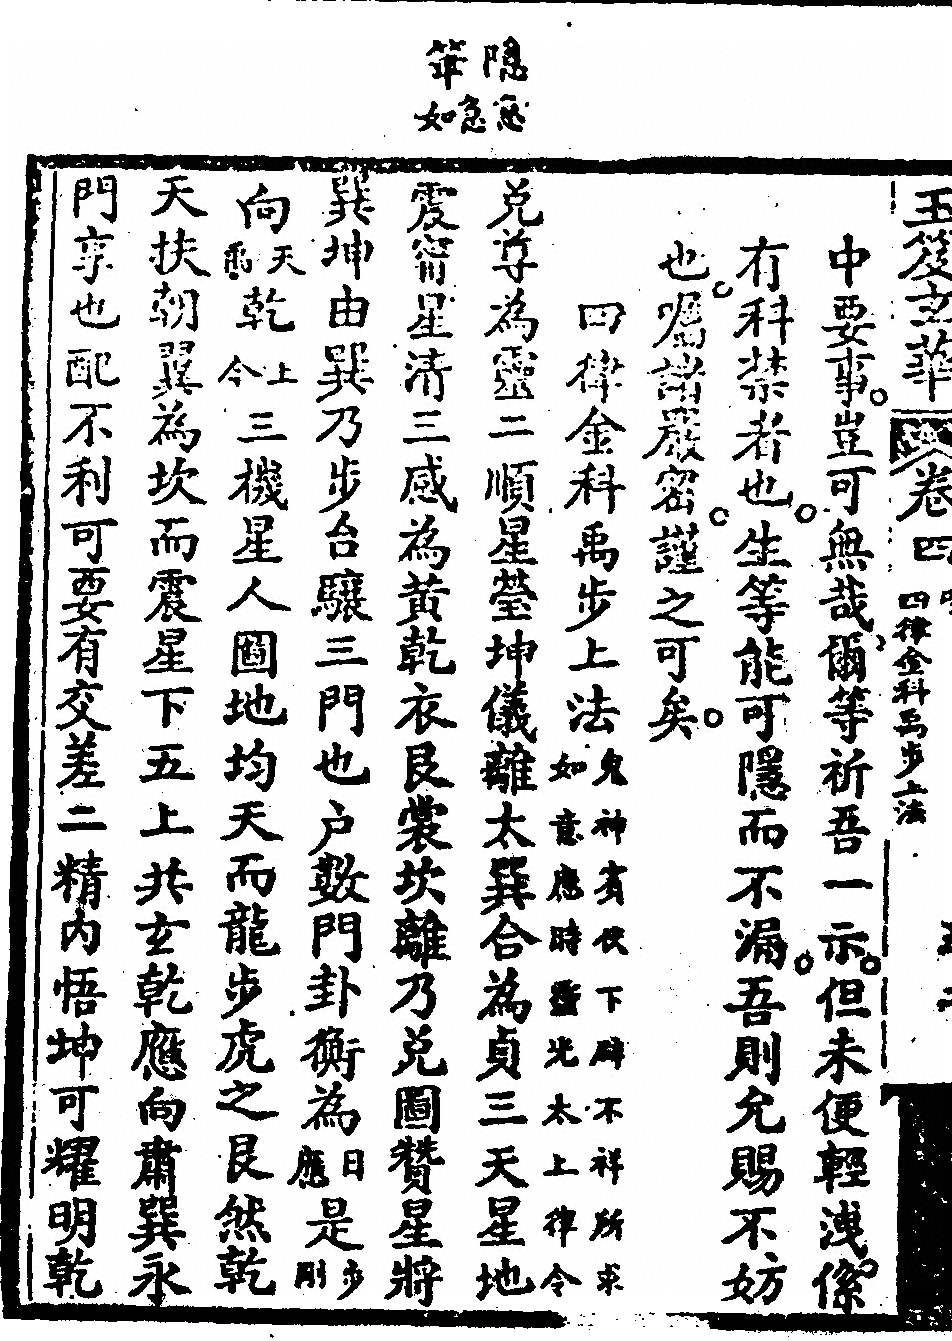 玉笈玄華 卷四 四律金科禹步上法
隱急急如
筆
中要事豈可無哉爾等祈吾一示但未便輕洩係
有科禁者也生等能可隱而不漏吾則允賜不妨
也囑諸嚴密謹之可矣
四律金科禹步上法 鬼神賓伏下辟不祥所求如意應時靈光太上律令
兌尊為靈二順星瑩坤儀離太巽合為貞三天星地
震甯星清三感為黃乾衣艮裳坎離乃兌圖贊星將
巽坤由巽乃步台驤三門也户數門卦衡為日應是步剛
向天雨乾上今三機星人圖地均天而龍步虎之艮然乾
天扶朝翼為坎而震星下五上共玄乾應向肅巽永
門享也配不利可要有交差二精內悟坤可耀明乾